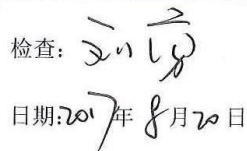 检查:
日期:2017年8月20日